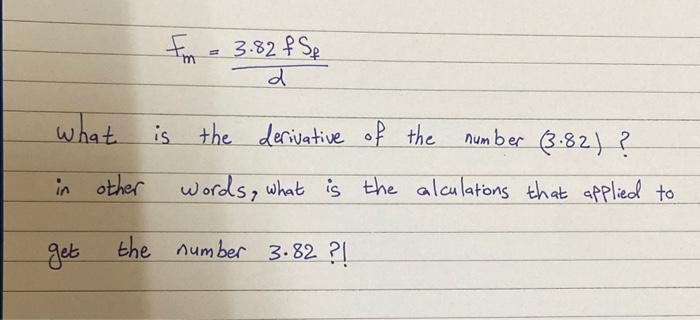 fm = 3.82 f Sf
d
what is the derivative of the number (3.82) ?
in other words, what is the alculations that applied to
get the number 3.82 ?!